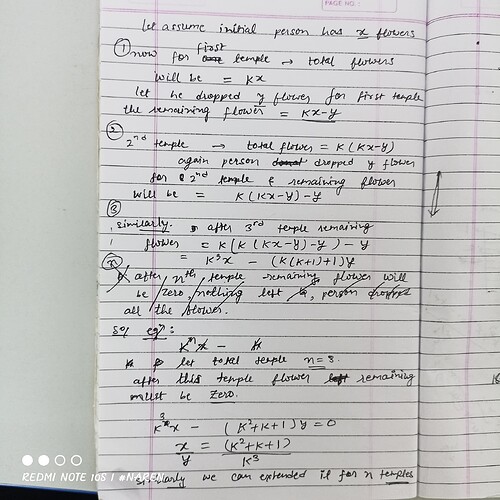 PAGE NO:
let assume initial person has x flowers
① now for first temple → total flowers
will be = Kx
let he dropped y flower for first temple
the remaining flower = Kx-y
②
2nd temple → total flower = K(Kx-y)
again person dropped y flower
for 2nd temple & remaining flower
will be = K(Kx-y)-y
③
similarly. after 3rd temple remaining
flower = K(K(Kx-y)-y)-y
= K³x - (K(K+1)+1)y
ⓝ
after nth temple remaining flower will
be zero, nothing left, person dropped
all the flower.
so, eqn:
Kⁿx -
let total temple n=3.
after this temple flower remaining
must be zero.
K³x - (K²+K+1)y=0
x/y = (K²+K+1)/K³
we can extended it for n temples
REDMI NOTE 10S | #NAREN